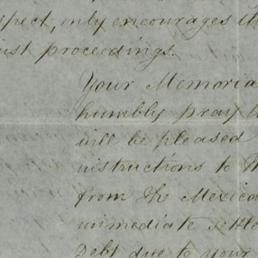 spect, only encourages th
ust proceedings.
Your Memoria
humbly pray t
will be pleased
instructions to th
from the Mexica
immediate settle
Debt due to your